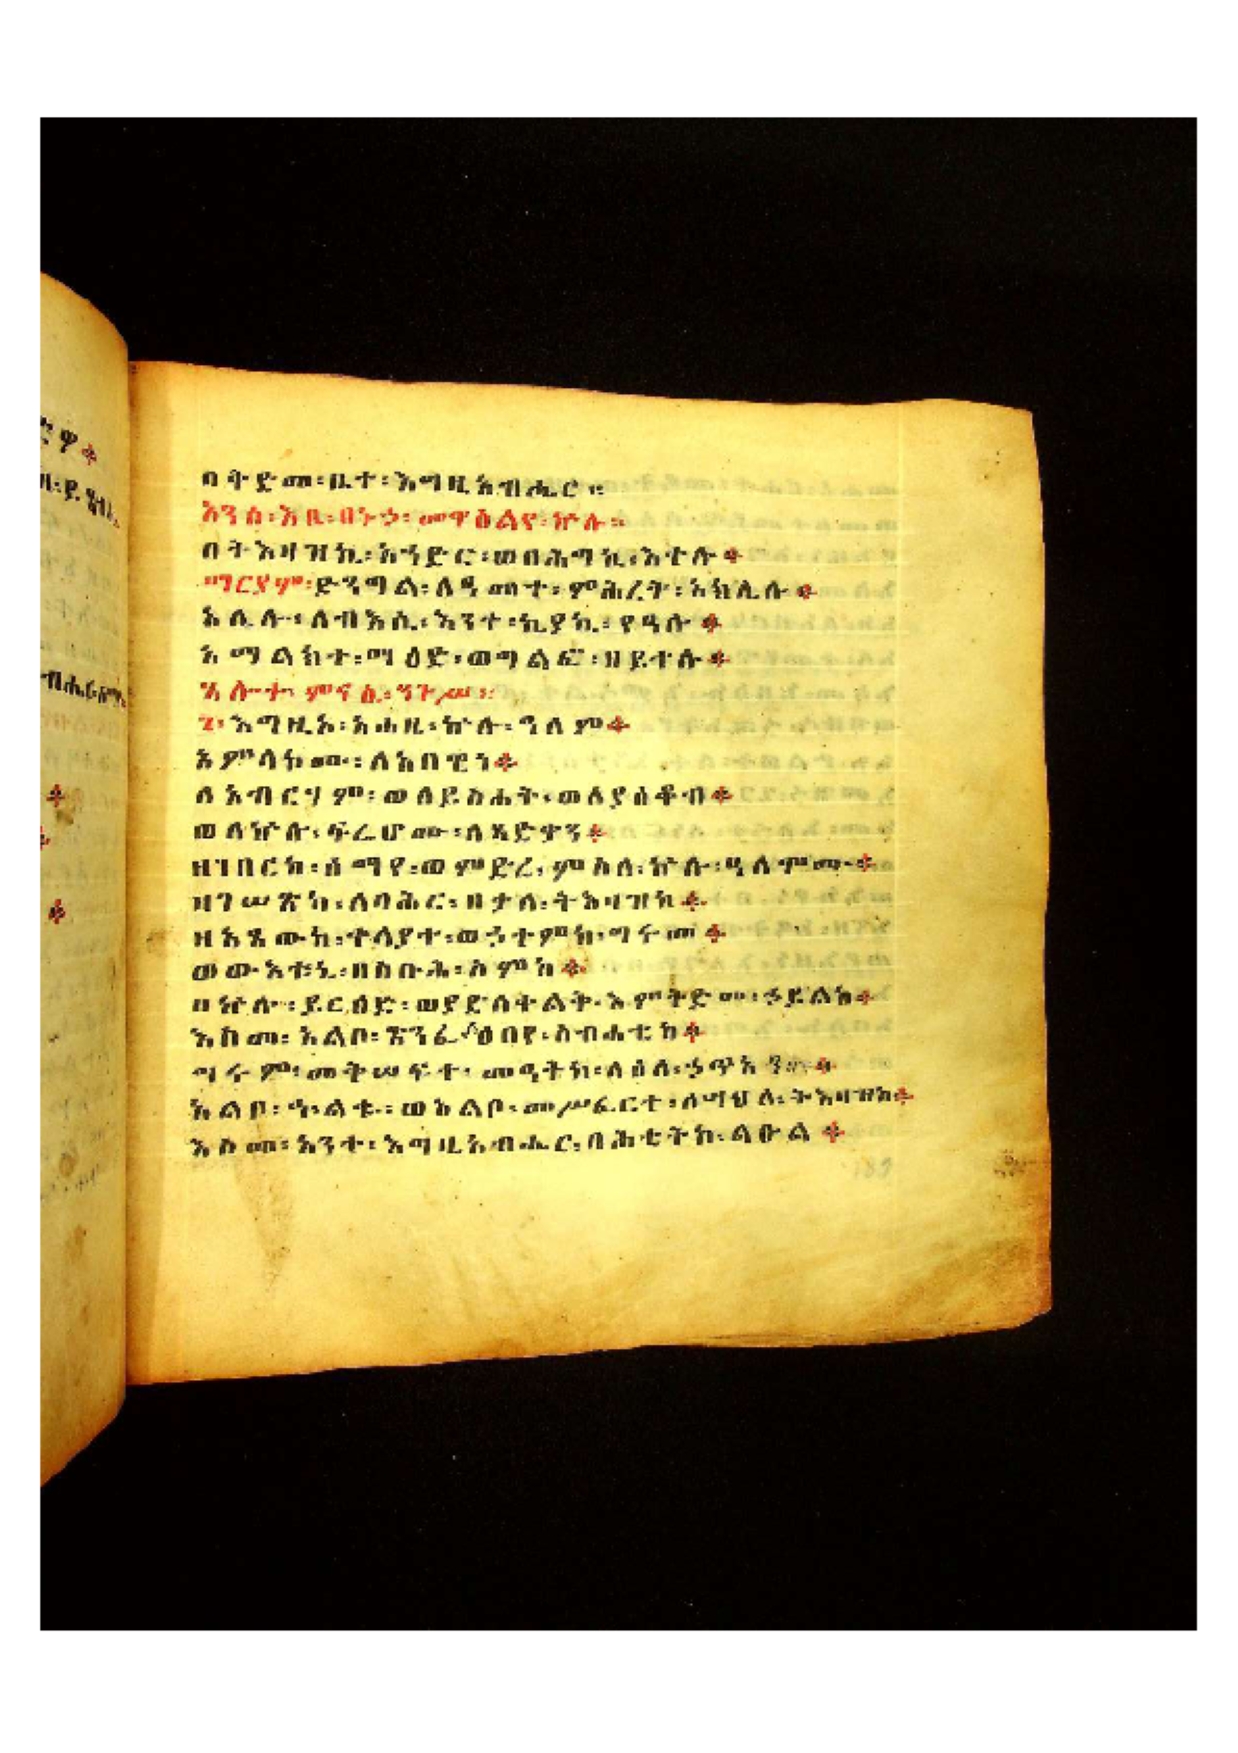 በትድመ፡ቤተ፡እግዚአብሔር።
አንሰ፡እቤ፡በኑኃ፡መዋዕልየ፡ኵሉ።
በትእዛዝኪ፡አንድር፡ወበሕግኪ፡እተሉ
ማርያም፡ድንግል፡ለዓመተ፡ምሕረት፡አክሊሉ
አሌሉ፡ለብእሲ፡እንተ፡ኪያኪ፡የዓሉ
አማልክተ፡ማዕድ፡ወግልፎ፡ዘይተሉ
ጸሎተ፡ምናሴ፡ንጉሥ።
፯፡እግዚኦ፡አሐዚ፡ኵሉ፡ዓለም
አምላኮሙ፡ለአበዊነ
ለአብርሃም፡ወለይስሐቅ፡ወለያዕቆብ
ወለኵሉ፡ፍሬሆሙ፡ለጻድቃን
ዘገበርከ፡ሰማየ፡ወምድረ፡ምስለ፡ኵሉ፡ዓለሞሙ
ዘገሠጽካ፡ለባሕር፡በቃለ፡ትእዛዝከ
ዘአጸውካ፡ቀላያተ፡ወኃተምከ፡ግሩመ
ወውእቱኒ፡በስቡሕ፡ስምከ
በኵሉ፡ይርዕድ፡ወያድለቀልቅ፡እምቅድመ፡ኃይልከ
እስመ፡አልቦ፡ጽንፈ፡ዕበየ፡ስብሐቲከ
ግሩም፡መቅሠፍተ፡መዓትከ፡ላዕለ፡ኃጥአን።
አልቦ፡ኍልቈ፡ወአልቦ፡መሥፈርተ፡ለሣህለ፡ትእዛዝከ
እስመ፡አንተ፡እግዚአብሔር፡በሕቲትከ፡ልዑል